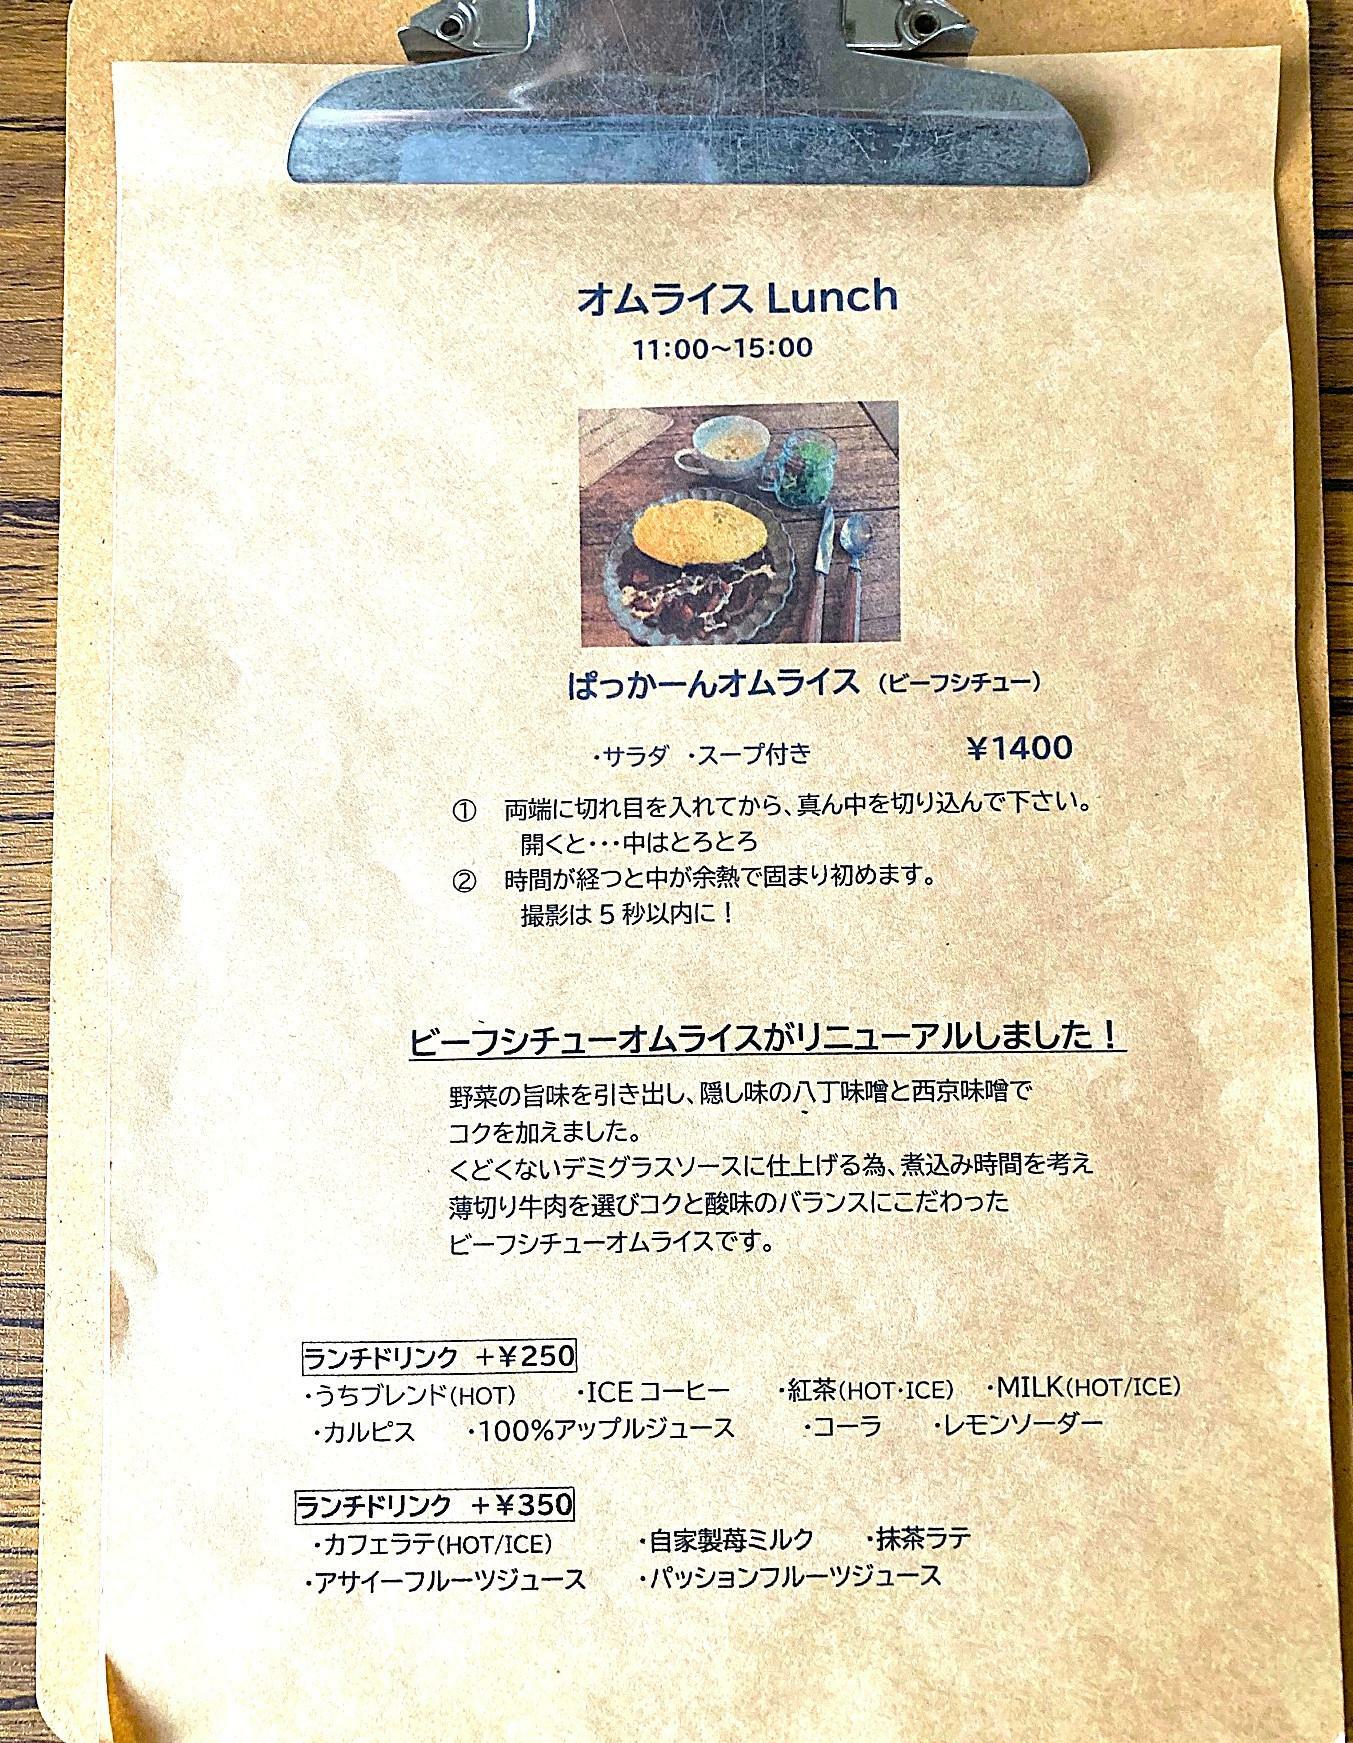 オムライス Lunch
11:00～15:00
ぱっかーんオムライス （ビーフシチュー）
・サラダ ・スープ付き ¥1400
① 両端に切れ目を入れてから、真ん中を切り込んで下さい。
開くと・・・中はとろとろ
② 時間が経つと中が余熱で固まり初めます。
撮影は 5 秒以内に！
ビーフシチューオムライスがリニューアルしました！
野菜の旨味を引き出し、隠し味の八丁味噌と西京味噌で
コクを加えました。
くどくないデミグラスソースに仕上げる為、煮込み時間を考え
薄切り牛肉を選びコクと酸味のバランスにこだわった
ビーフシチューオムライスです。
ランチドリンク ＋¥250
・うちブレンド(HOT) ・ICE コーヒー ・紅茶(HOT・ICE) ・MILK(HOT/ICE)
・カルピス ・100%アップルジュース ・コーラ ・レモンソーダー
ランチドリンク ＋¥350
・カフェラテ(HOT/ICE) ・自家製苺ミルク ・抹茶ラテ
・アサイーフルーツジュース ・パッションフルーツジュース